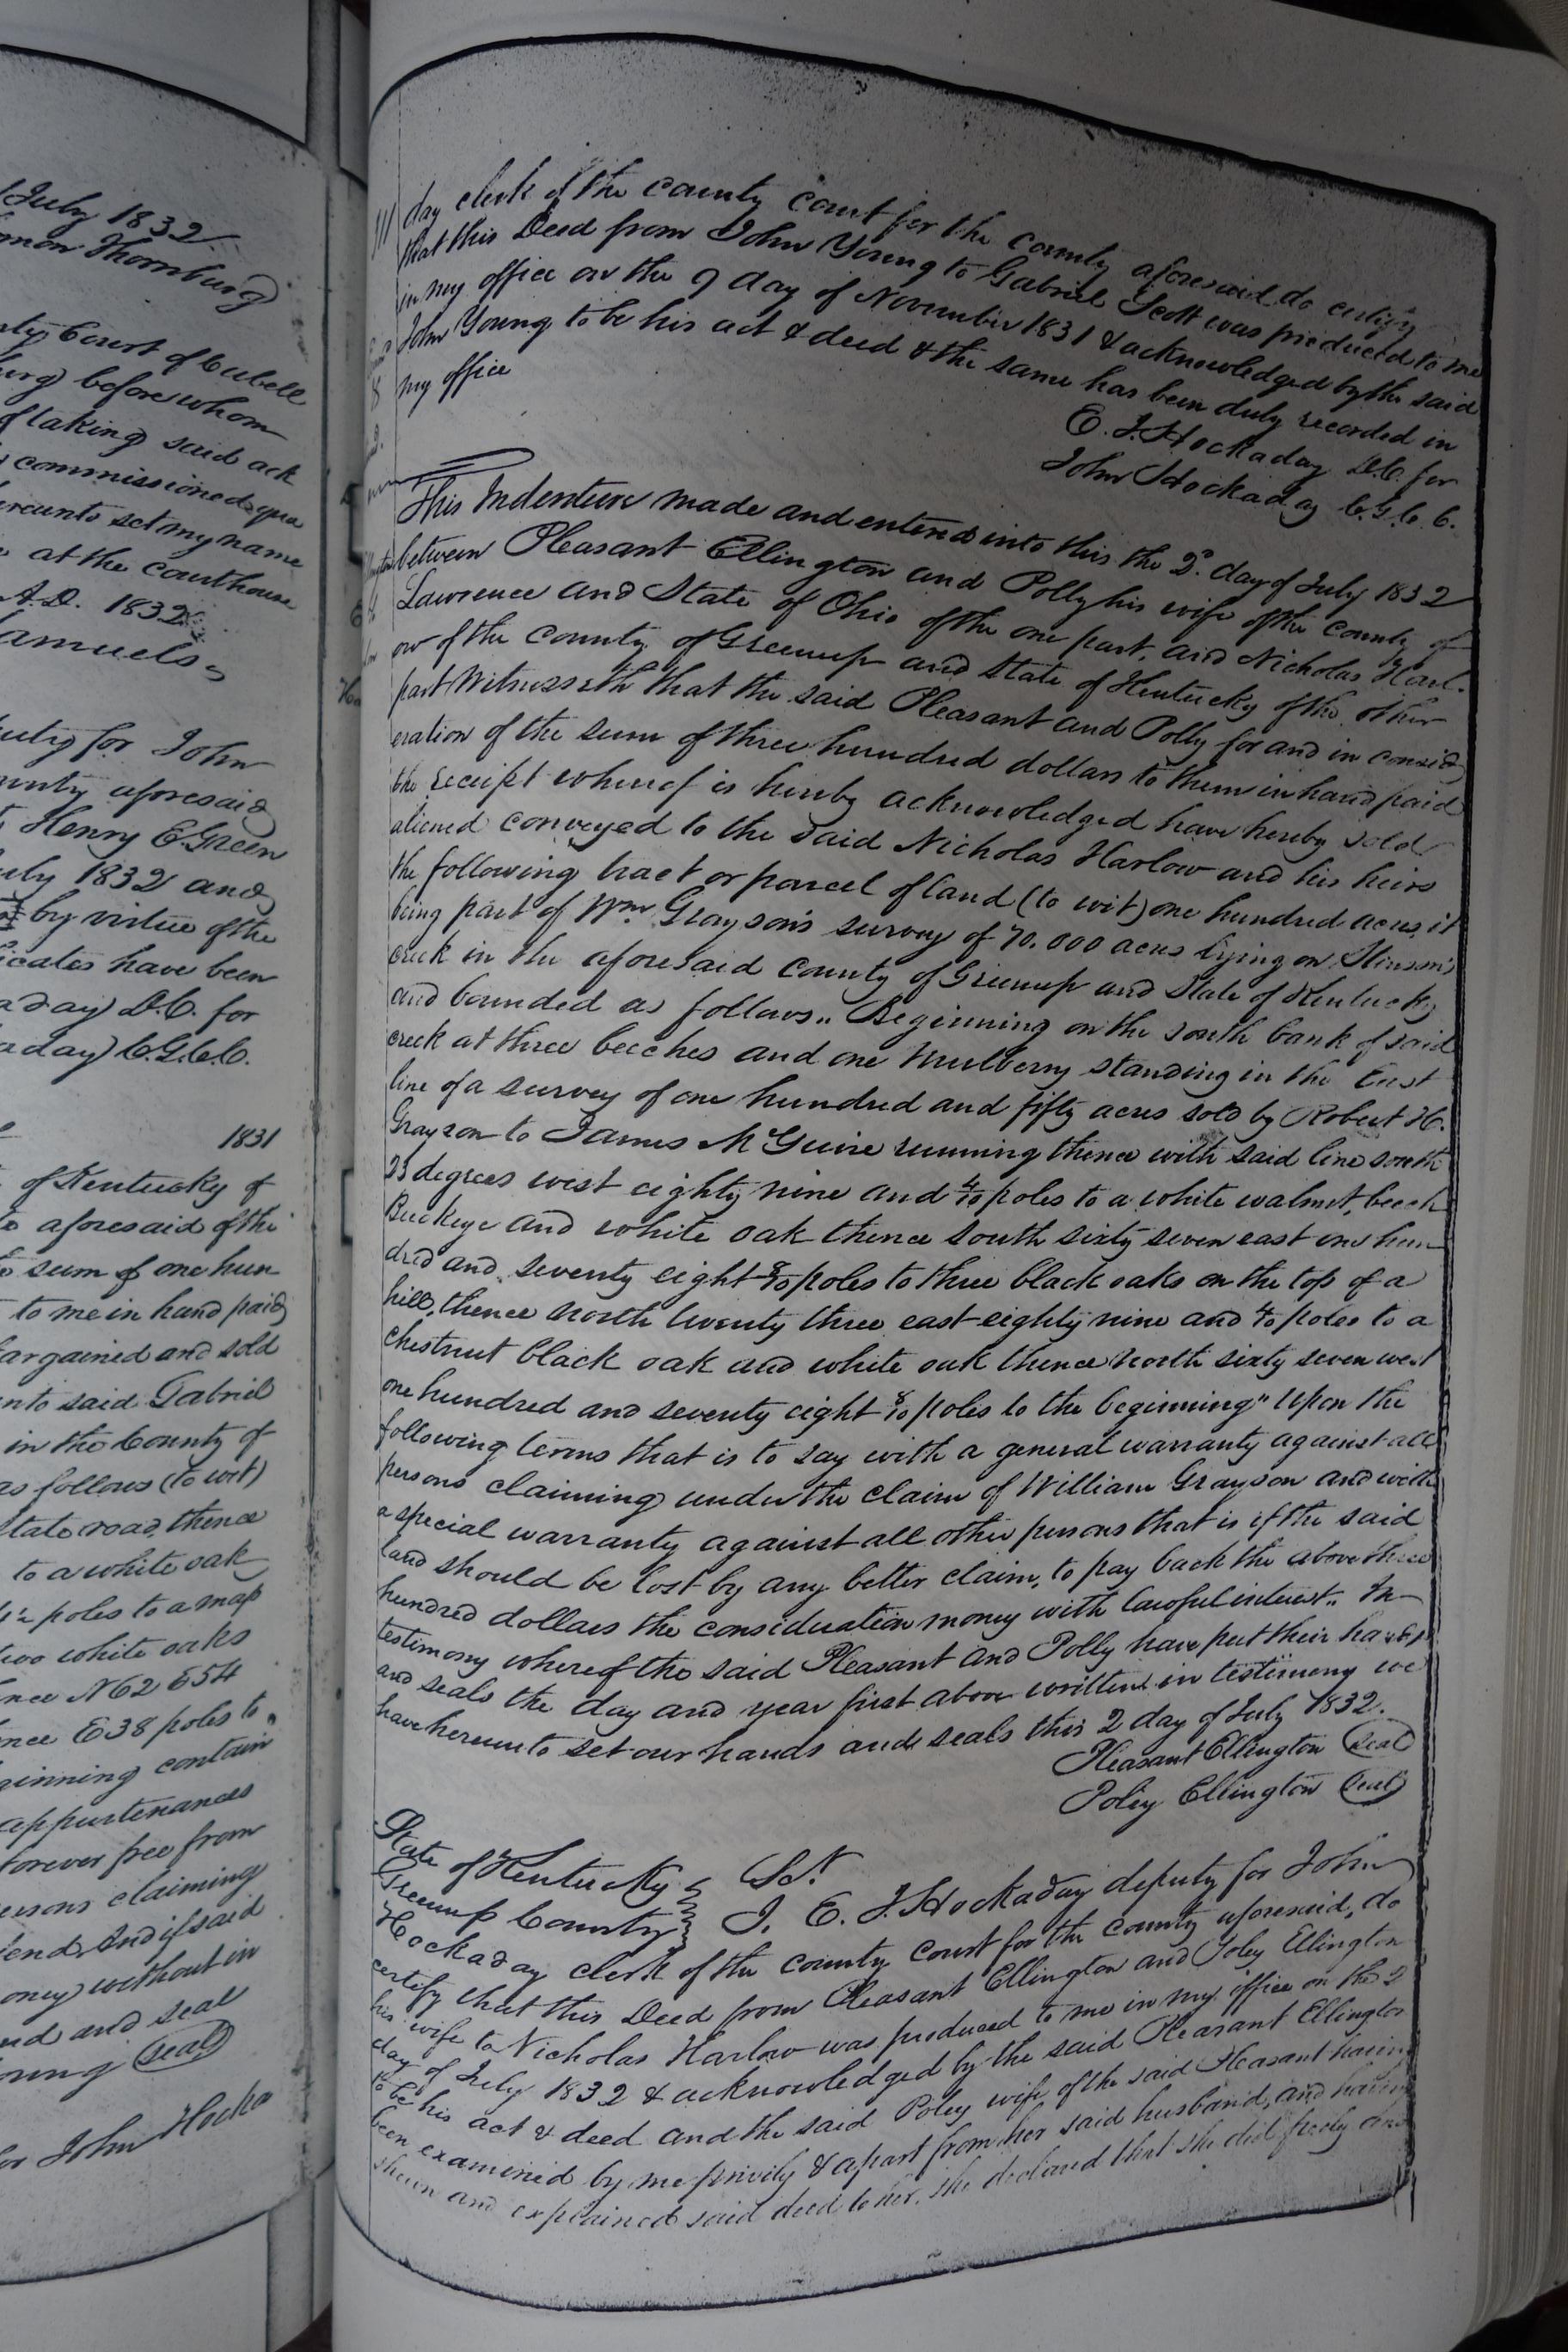 July 1832
Thornburg
Court of Cabell
before whom
of taking said ack
commissioned qua
set my name
at the courthouse
A.D. 1832
Samuels
for John
aforesaid
Henry E. Green
July 1832 and
by virtue of the
have been
D.C. for
C.G.C.C.
1831
of Kentucky of
aforesaid of the
sum of one hun
to me in hand paid
bargained and sold
unto said Gabriel
in the County of
as follows (to wit)
State road, thence
to a white oak
poles to a map
two white oaks
N62 E54
E38 poles to
contain
appurtenances
forever free from
claiming
And if said
without in
and seal
Young (seal)
for John Hocka
day clerk of the county court for the county aforesaid do certify
that this Deed from John Young to Gabriel Scott was produced to me
in my office on the 9 day of November 1831 & acknowledged by the said
John Young to be his act & deed & the same has been duly recorded in
my office
E. J. Hockaday D.C. for
John Hockaday C.G.C.C.
This Indenture made and entered into this the 2d. day of July 1832
between Pleasant Ellington and Polly his wife of the county of
Lawrence and State of Ohio of the one part, and Nicholas Harl-
ow of the county of Greenup and State of Kentucky of the other
part Witnesseth that the said Pleasant and Polly for and in consid
eration of the sum of three hundred dollars to them in hand paid
the receipt whereof is hereby acknowledged have hereby sold
aliened conveyed to the said Nicholas Harlow and his heirs
the following tract or parcel of land (to wit) one hundred acres it
being part of Wm Grayson's survey of 70.000 acres lying on Stinson's
creek in the aforesaid county of Greenup and State of Kentucky
and bounded as follows.. Beginning on the south bank of said
creek at three beeches and one Mulberry standing in the East
line of a survey of one hundred and fifty acres sold by Robert H.
Grayson to James McGuire running thence with said line south
23 degrees west eighty nine and 4/10 poles to a white walnut, beech
Buckeye and white oak thence south sixty seven east one hun
dred and seventy eight 8/10 poles to three black oaks on the top of a
hill, thence north twenty three east eighty nine and 4/10 poles to a
chestnut black oak and white oak thence north sixty seven west
one hundred and seventy eight 8/10 poles to the beginning" Upon the
following terms that is to say with a general warranty against all
persons claiming under the claim of William Grayson and with
a special warranty against all other persons that is if the said
land should be lost by any better claim, to pay back the above three
hundred dollars the consideration money with lawful interest.. In
testimony whereof the said Pleasant and Polly have put their hands
and seals the day and year first above written in testimony we
have hereunto set our hands and seals this 2 day of July 1832.
Pleasant Ellington (seal)
Poley Ellington (seal)
State of Kentucky Sct
Greenup County I. E. J. Hockaday deputy for John
Hockaday clerk of the county court for the county aforesaid, do
certify that this Deed from Pleasant Ellington and Poley Ellington
his wife to Nicholas Harlow was produced to me in my office on the 2
day of July 1832 & acknowledged by the said Pleasant Ellington
to be his act & deed and the said Poley wife of the said Pleasant having
been examined by me privily & apart from her said husband, and having
shewn and explained said deed to her, she declared that she did freely and